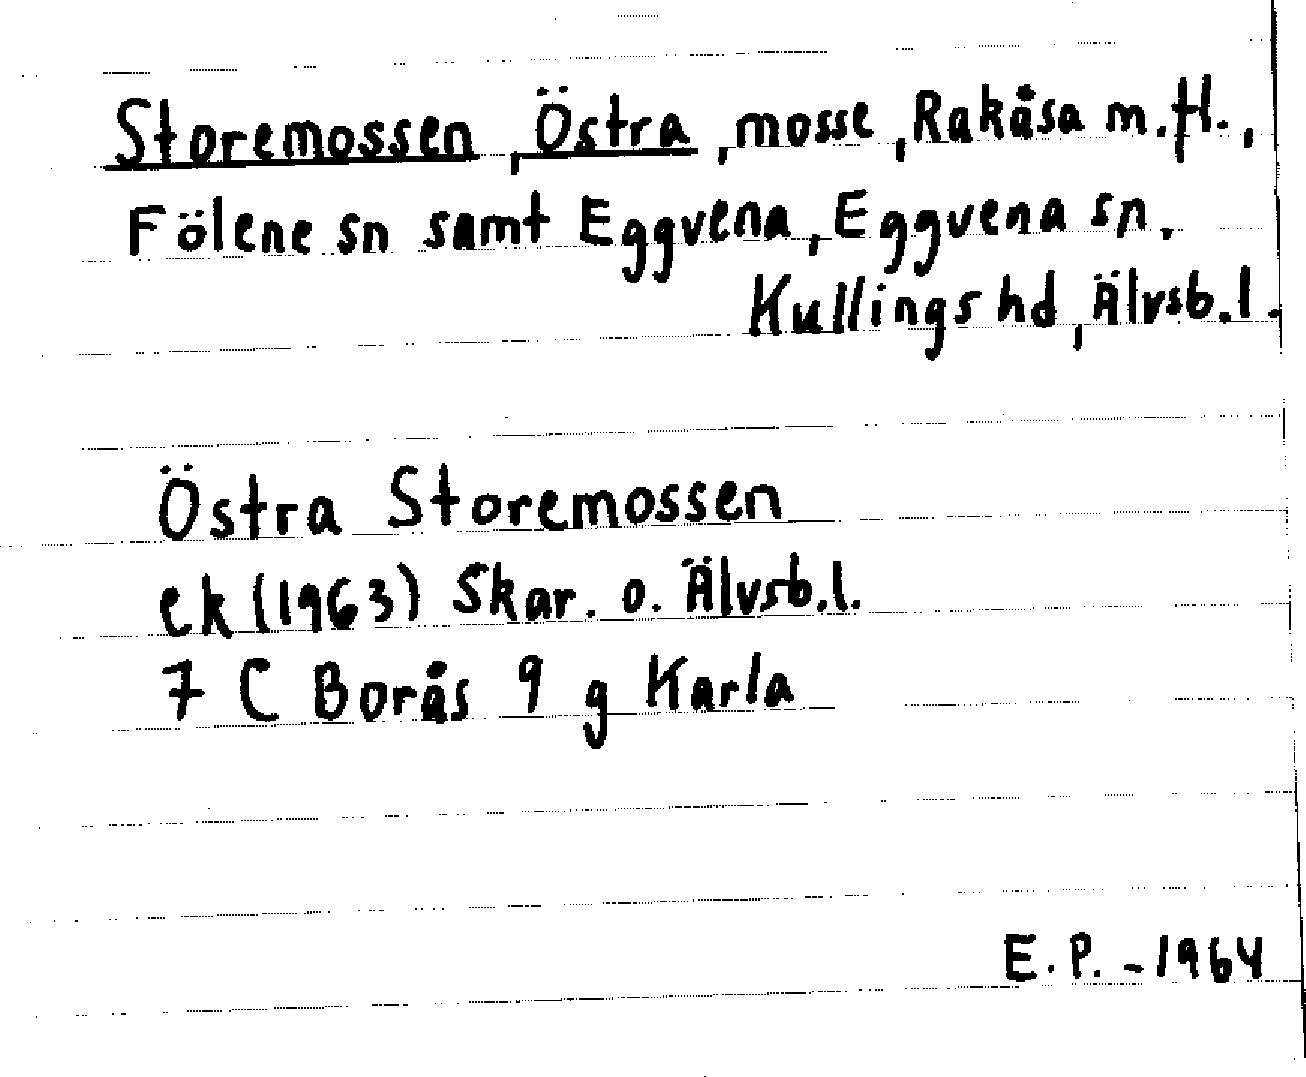 Storemossen, Östra, mosse, Rakåsa m.fl.,
Fölene sn samt Eggvena, Eggvena sn.
Kullings hd, Älvsb.l.
Östra Storemossen
ek (1963) Skar. o. Älvsb.l.
7 C Borås 9 g Karla
E.P. - 1964